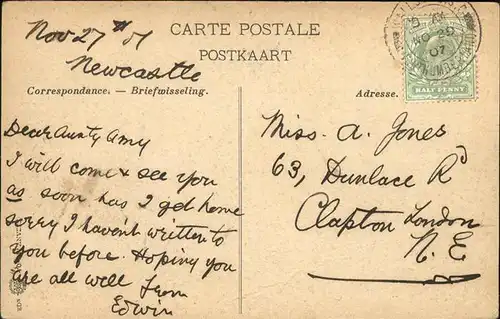 CARTE POSTALE
POSTKAART
Nov 27th 07
Newcastle
Correspondance. — Briefwisseling.
Adresse.
HALF PENNY
Dear Aunty Amy
I will come & see you
as soon has I get home
sorry I haven't written to
you before. Hoping you
are all well from
Edwin
Miss. A. Jones
63, Dunlace Rd
Clapton London
N. E